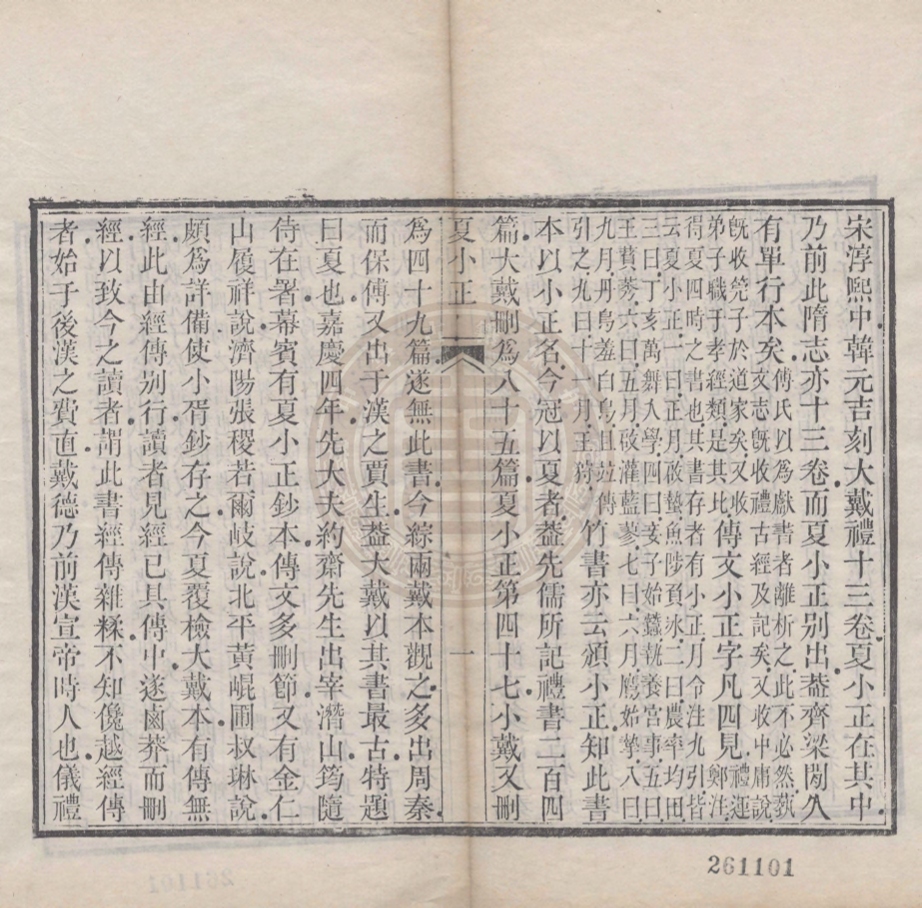 宋淳熙中韓元吉刻大戴禮十三卷夏小正在其中
乃前此隋志亦十三卷而夏小正别出葢齊梁閒久
有單行本矣傅氏以爲獻書者離析之此不必然蓺
文志旣收禮古經及記矣又收中庸說
旣收筦子於道家矣又收
弟子職于孝經類是其比傳文小正字凡四見鄭注
禮運
得夏四時之書也其書存者有小正月令注九引皆
云夏小正一曰正月啟蟄魚陟負冰二曰農率均田
三曰丁亥萬舞入學四曰妾子始蠶執養宮事五曰
王萯莠六曰五月啟灌藍蓼七曰六月鷹始摯八曰
九月丹鳥羞白鳥且竝傳
引之九曰十一月王狩竹書亦云頒小正知此書
本以小正名今冠以夏者葢先儒所記禮書二百四
篇大戴刪爲八十五篇夏小正第四十七小戴又刪
夏小正
一
爲四十九篇遂無此書今綜兩戴本觀之多出周秦
而保傅又出于漢之賈生葢大戴以其書最古特題
曰夏也嘉慶四年先大夫約齋先生出宰潛山筠隨
侍在署幕賓有夏小正鈔本傳文多刪節又有金仁
山履祥說濟陽張稷若爾岐說北平黃崐圃叔琳說
頗爲詳備使小胥鈔存之今夏覆檢大戴本有傳無
經此由經傳别行讀者見經已具傳中遂鹵莽而刪
經以致今之讀者謂此書經傳雜糅不知儳越經傳
者始于後漢之費直戴德乃前漢宣帝時人也儀禮
261101